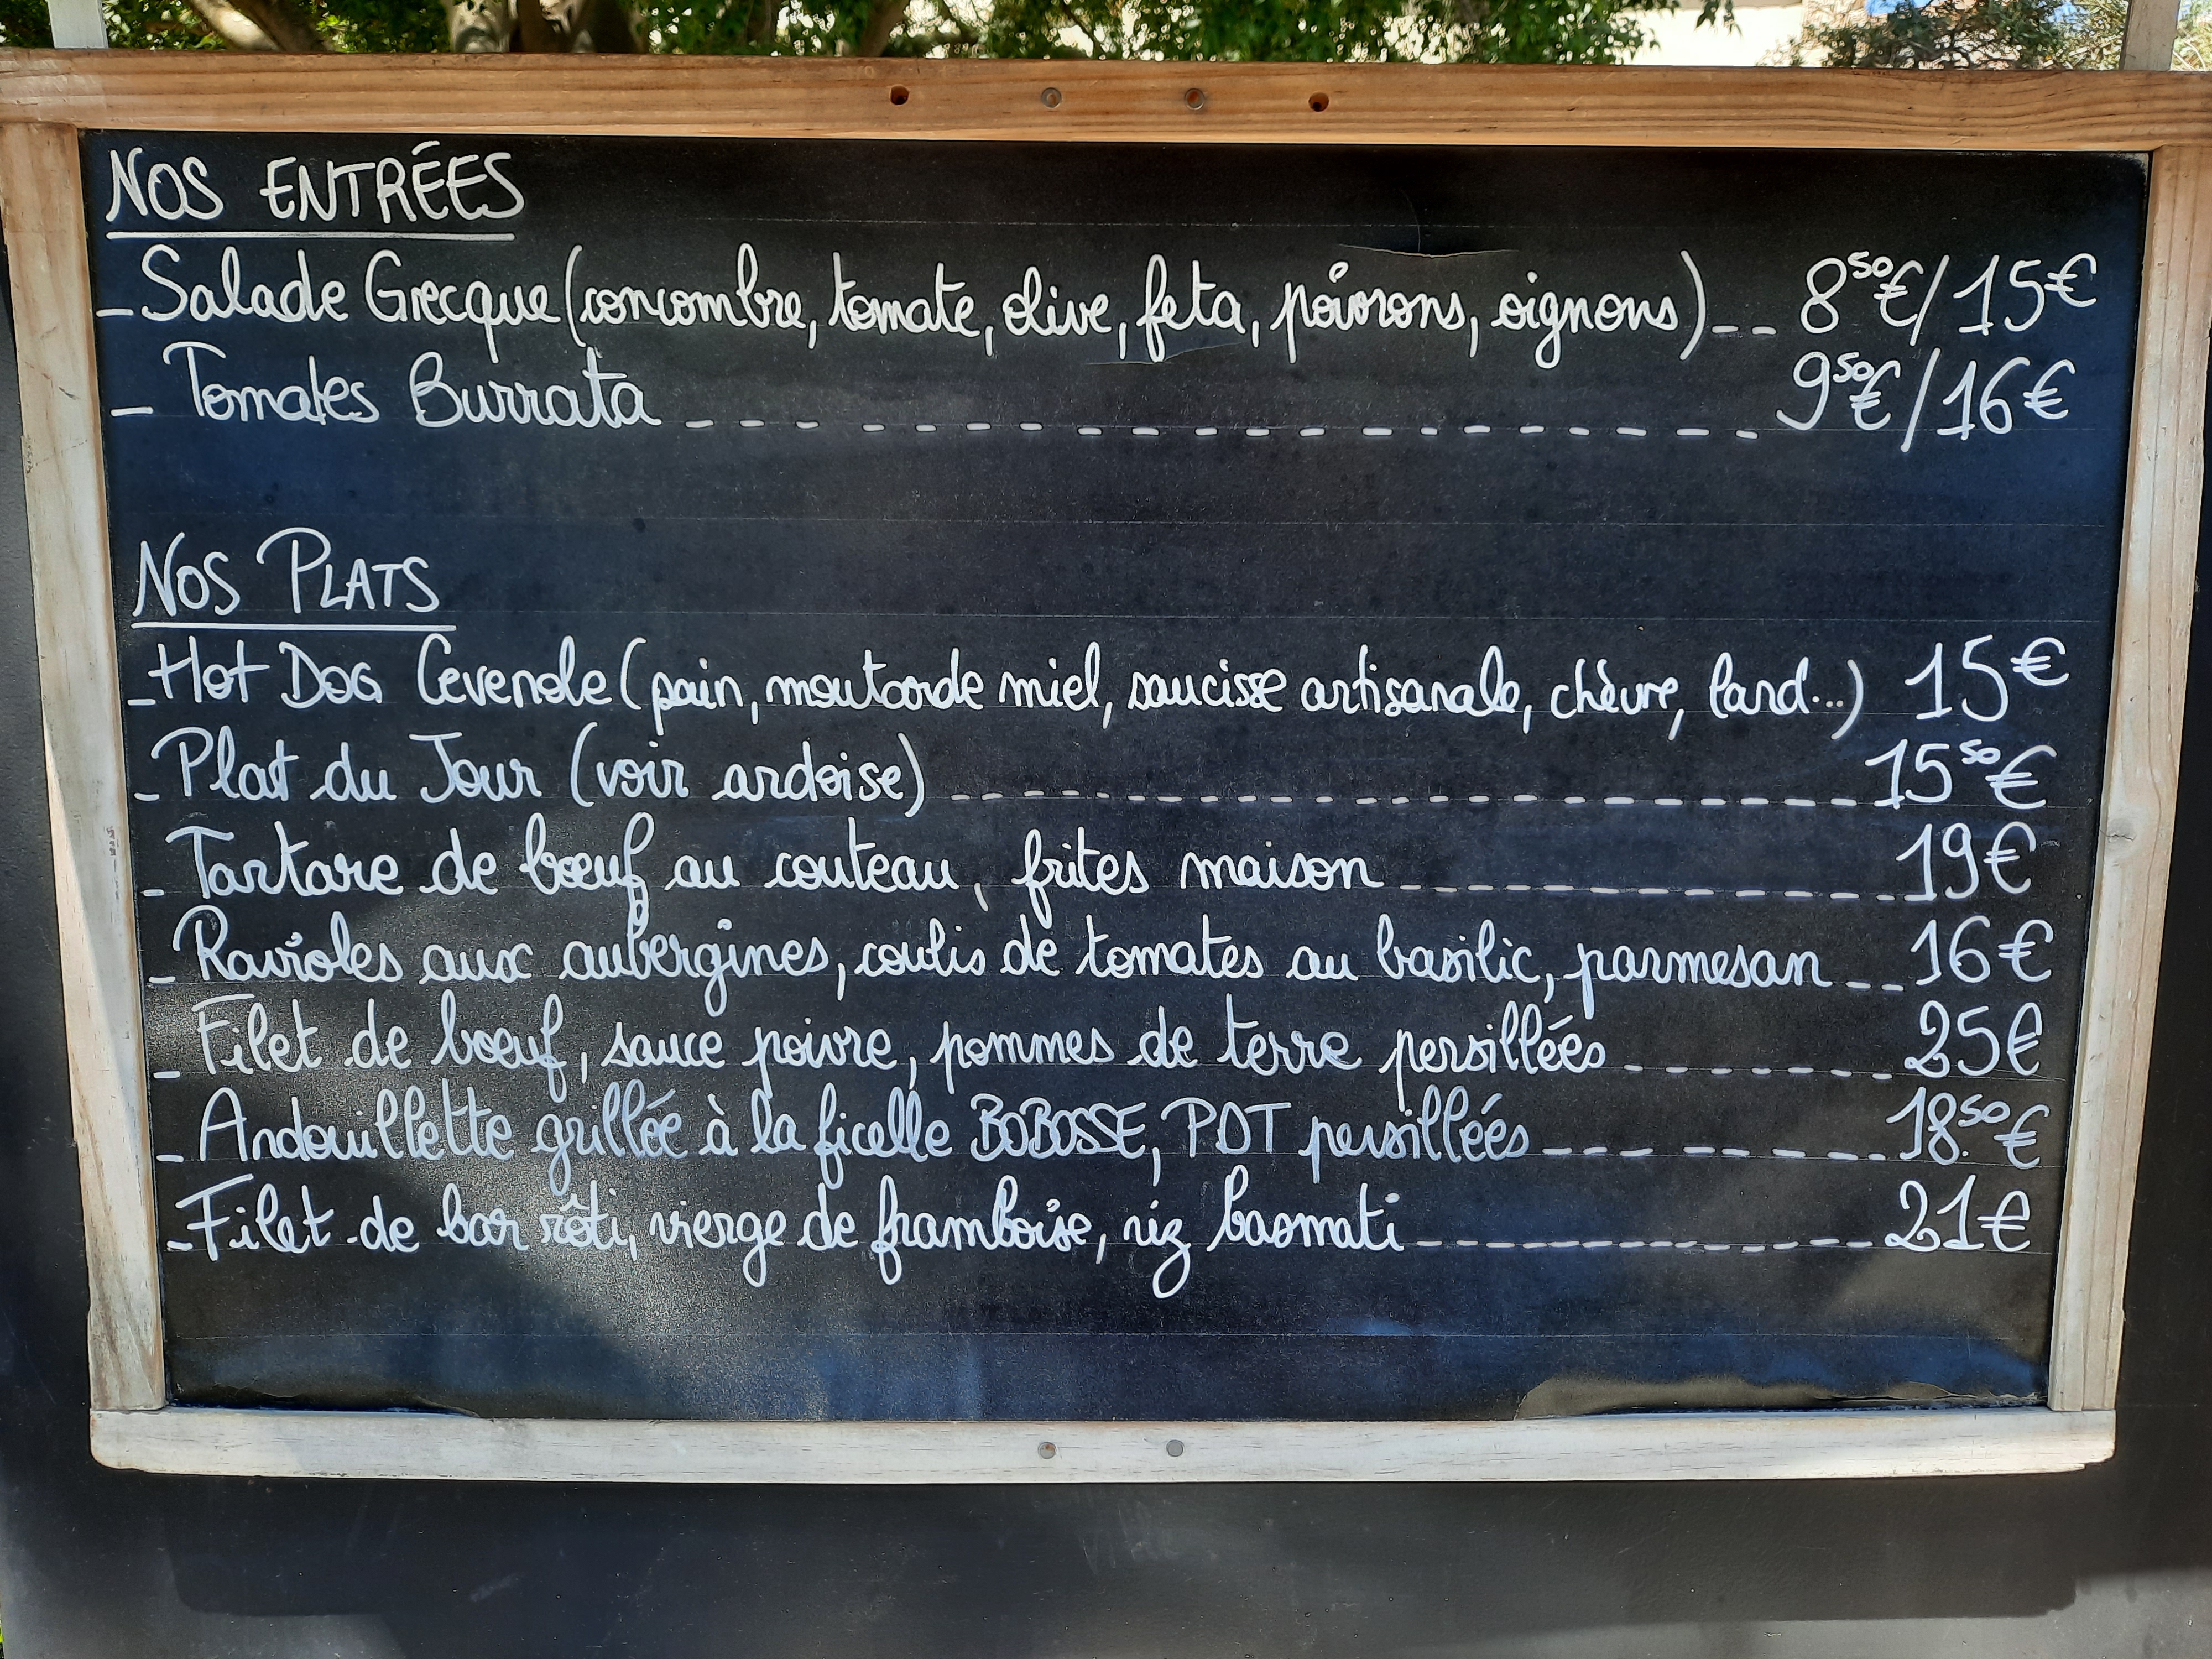 NOS ENTRÉES
- Salade Grecque (concombre, tomate, olive, feta, poivrons, oignons) -- 8⁵⁰€/15€
- Tomates Burrata -------------------- 9⁵⁰€/16€
NOS PLATS
- Hot Dog Cevenole (pain, moutarde miel, saucisse artisanale, chèvre, lard...) 15€
- Plat du Jour (voir ardoise) -------------------- 15⁵⁰€
- Tartare de bœuf au couteau, frites maison ------------ 19€
- Ravioles aux aubergines, coulis de tomates au basilic, parmesan -- 16€
- Filet de bœuf, sauce poivre, pommes de terre persillées ------- 25€
- Andouillette grillée à la ficelle BOBOSSE, PDT persillées -------- 18.⁵⁰€
- Filet de bar rôti, vierge de framboise, riz basmati ------------ 21€